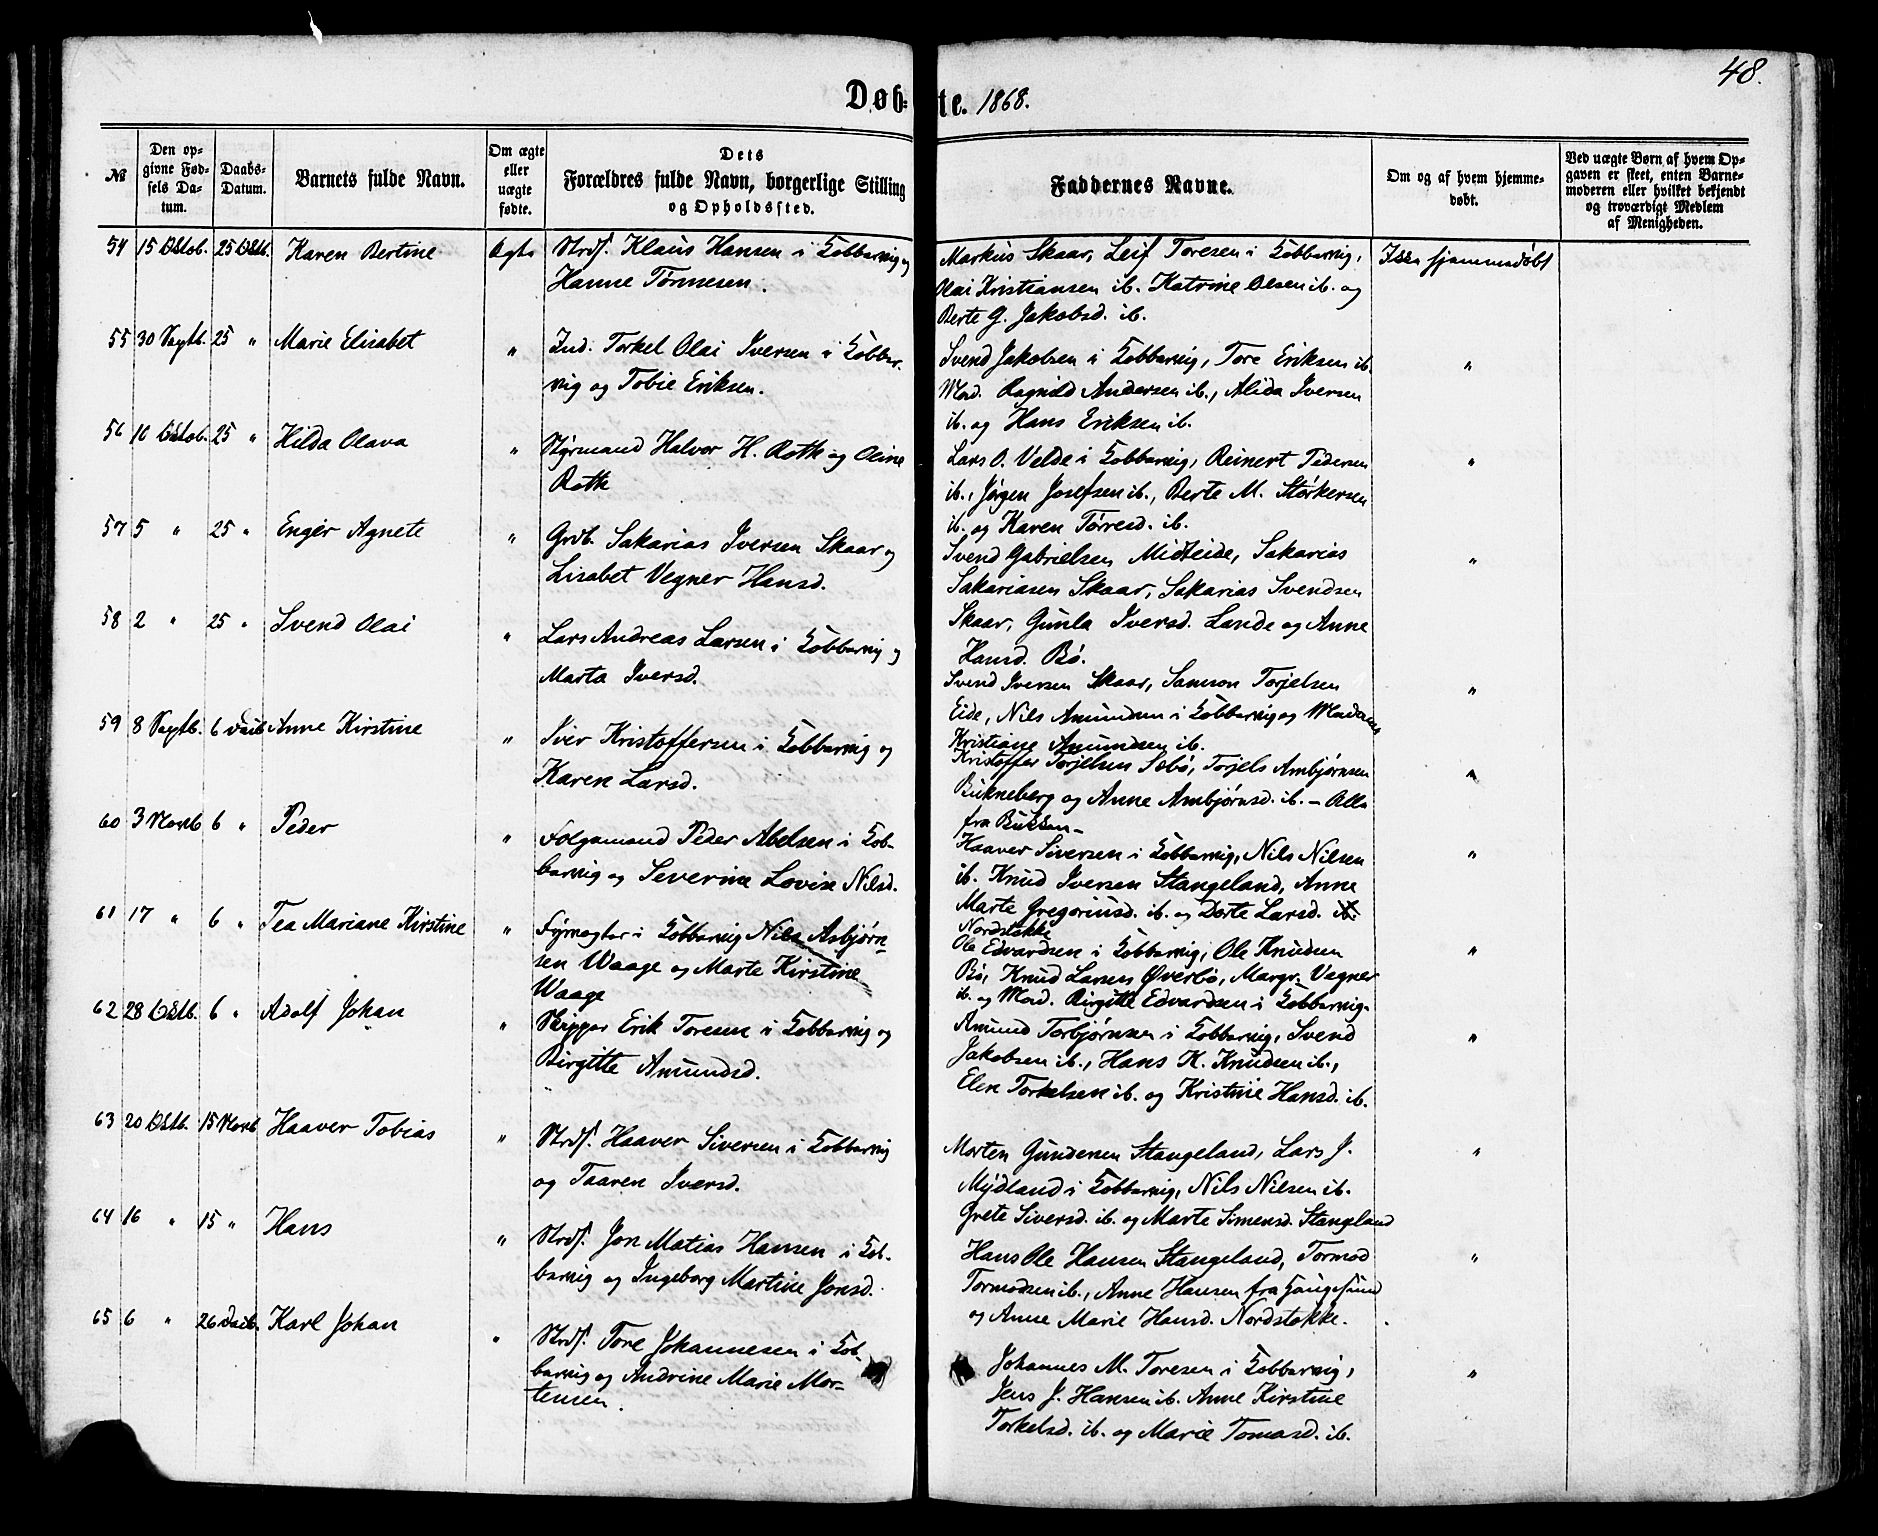 48.
Døb- te. 1868.
№
Den op-
givne Fød-
sels Da-
tum.
Daabs-
Datum.
Barnets fulde Navn.
Om ægte
eller
uægte
fødte.
Dets
Forældres fulde Navn, borgerlige Stilling
og Opholdssted.
Faddernes Navne.
Om og af hvem hjemme-
døbt.
Ved uægte Børn af hvem Op-
gaven er skeet, enten Barne-
moderen eller hvilket bekjendt
og troværdigt Medlem
af Menigheden.
54 15 Oktob. 25 Oktb. Karen Bertine Ægte Strds. Klaus Hansen i Kobbervig og
Hanne Tønnesen.
Markus Skaar, Leif Toresen i Kobbervig,
Olai Kristiansen ib. Katrine Olsen ib. og
Berte G. Jakobsd. ib.
Ikke hjemmedøbt
55 30 Septb. 25 " Marie Elisabet " Ind. Torkel Olai Iversen i Kobber-
vig og Tobie Eriksen.
Svend Jakobsen i Kobbervig, Tore Eriksen ib.
Mad. Ragnild Andersen ib., Alida Iversen
ib. og Hans Eriksen ib.
"
56 10 Oktob. 25 " Hilda Olava " Styrmand Halvor H. Roth og Oline
Roth
Lars O. Velde i Kobbervig, Reinert Pedersen
ib., Jørgen Josefsen ib., Berte M. Størkersen
ib. og Karen Tørresd. ib.
"
57 5 " 25 " Enger Agnete " Grdb. Sakarias Iversen Skaar og
Lisabet Vegner Hansd.
Svend Gabrielsen Midteide, Sakarias
Sakariasen Skaar, Sakarias Svendsen
Skaar, Gunla Iversd. Lande og Anne
Hansd. Bø.
"
58 2 " 25 " Svend Olai " Lars Andreas Larsen i Kobbervig og
Marta Iversd.
Svend Iversen Skaar, Samson Torjelsen
Eide, Nils Amundsen i Kobbervig og Madame
Kristiane Amundsen ib.
"
59 8 Septb. 6 Decb. Anne Kirstine " Siver Kristoffersen i Kobbervig og
Karen Larsd.
Kristoffer Torjelsen Sæbø, Torjels Ambjørnsen
Bukneberg og Anne Ambjørnsd. ib. – Alle
fra Bukken –
"
60 3 Novb 6 " Peder " Følgemand Peder Abelsen i Kob-
bervig og Severine Lovise Nilsd.
Haaver Siversen i Kobbervig, Nils Nilsen
ib. Knud Iversen Stangeland, Anne
Marte Gregoriusd. ib. og Dorte Larsd. ib.
Nordstokke
"
61 17 " 6 " Tea Mariane Kirstine " Fyrvogter i Kobbervig Nils Asbjørn-
sen Waage og Marte Kirstine
Waage
Ole Edvardsen i Kobbervig, Ole Knudsen
Bø, Knud Larsen Øverbø, Margr. Vegner
ib. og Mad. Birgitte Edvardsen i Kobbervig.
"
62 28 Oktb. 6 " Adolf Johan " Skipper Erik Toresen i Kobbervig og
Birgitte Amundsd.
Amund Torbjørnsen i Kobbervig, Svend
Jakobsen ib., Hans K. Knudsen ib.,
Elen Torkelsen ib. og Kristine Hansd. ib.
"
63 20 Oktb. 15 Novb Haaver Tobias " Strds. Haaver Siversen i Kobbervig
og Taaren Iversd.
Morten Gundersen Stangeland, Lars J.
Mydland i Kobbervig, Nils Nilsen ib.
Grete Siversd. ib. og Marte Simensd. Stangeland
"
64 16 " 15 " Hans " Strds. Jon Matias Hansen i Kob-
bervig og Ingeborg Martine Jonsd.
Hans Ole Hansen Stangeland, Tormod
Tormodsen ib., Anne Hansen fra Haugesund
og Anne Marie Hansd. Nordstokke.
"
65 6 " 26 Decb. Karl Johan " Strds. Tore Johannesen i Kob-
bervig og Andrine Marie Mor-
tensen.
Johannes M. Toresen i Kobbervig,
Jens J. Hansen ib. Anne Kirstine
Torkelsd. ib. og Marie Tomasd. ib.
"